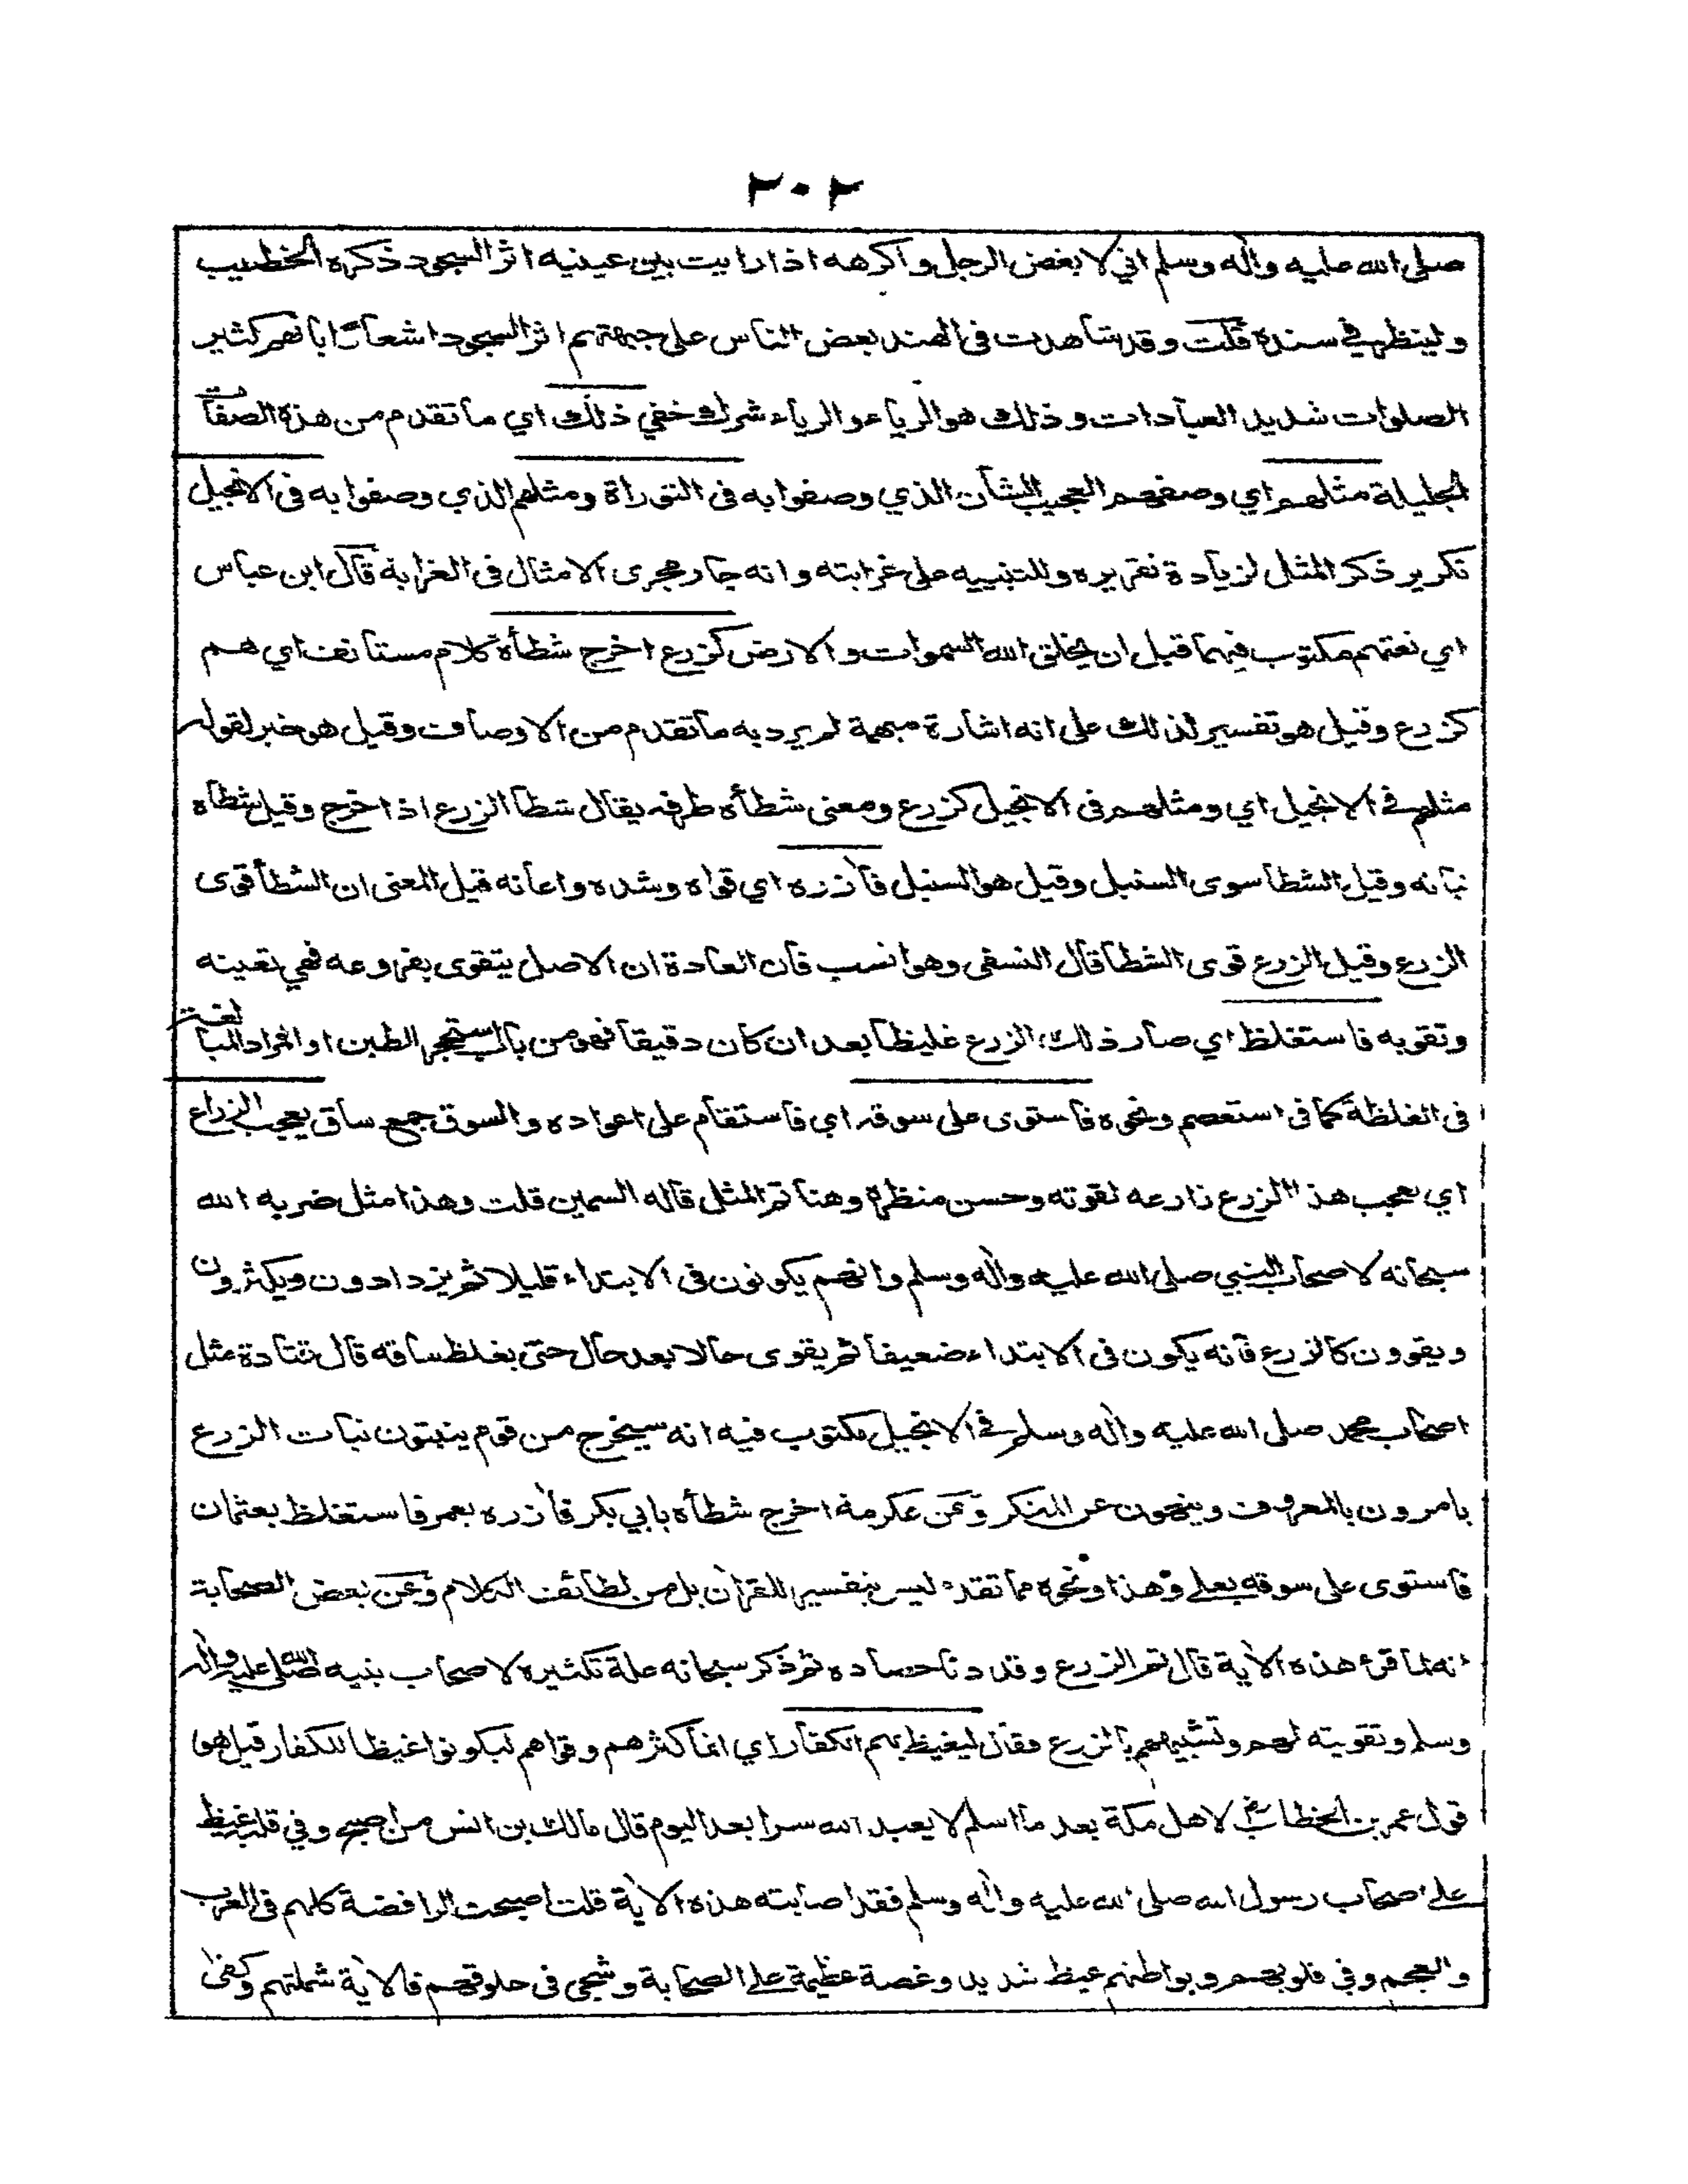 ٢٠٢
صلى الله عليه وآله وسلم اني لا بغض الرجل وأكرهه اذا رايت بين عينيه اثر السجود ذكره الخطيب
ولينظر في سنده قلت وقد شاهدت فى الهند بعض الناس على جبهتهم اثر السجود اشعارا بانهم كثير
الصلوات شديد العبادات وذلك هو الرياء والرياء شرك خفي ذلك اي ما تقدم من هذه الصفات
الجليلة مثلهم اي وصفهم العجيب الشأن الذي وصفوا به فى التوراة ومثلهم الذي وصفوا به فى الانجيل
تكرير ذكر المثل لزيادة تقريره وللتنبيه على غرابته وانه جار مجرى الامثال فى الغرابة قال ابن عباس
اي نعتهم مكتوب فيهما قبل ان يخلق الله السموات والارض كزرع اخرج شطأه كلام مستانف اي هم
كزرع وقيل هو تفسير لذلك على انه اشارة مبهمة لم يرد به ما تقدم من الاوصاف وقيل هو خبر لقوله
مثلهم في الانجيل اي ومثلهم فى الانجيل كزرع ومعنى شطأه طرفه يقال شطأ الزرع اذا خرج وقيل شطاه
نباته وقيل الشطأ سوى السنبل وقيل هو السنبل فآزره اي قواه وشده واعانه قيل المعنى ان الشطأ قوى
الزرع وقيل الزرع قوى الشطا قال النسفى وهو انسب فان العادة ان الاصل يتقوى بفروعه فهي تعينه
وتقويه فاستغلظ اي صار ذلك الزرع غليظا بعد ان كان دقيقا فهو من باب استحجر الطين او المراد المبالغة
فى الغلظة كما فى استعصم ونحوه فاستوى على سوقه اي فاستقام على اعواده والسوق جمع ساق يعجب الزراع
اي يعجب هذا الزرع زارعه لقوته وحسن منظره وهنا تم المثل قاله السمين قلت وهذا مثل ضربه الله
سبحانه لاصحاب النبي صلى الله عليه وآله وسلم وانهم يكونون فى الابتداء قليلا ثم يزدادون ويكثرون
ويقوون كالزرع فانه يكون فى الابتداء ضعيفا ثم يقوى حالا بعد حال حتى يغلظ ساقه قال قتادة مثل
اصحاب محمد صلى الله عليه وآله وسلم في الانجيل مكتوب فيه انه سيخرج من قوم ينبتون نبات الزرع
يامرون بالمعروف وينهون عن المنكر وعن عكرمة اخرج شطأه بابي بكر فآزره بعمر فاستغلظ بعثمان
فاستوى على سوقه بعلي وهذا ونحوه مما تقدم ليس بتفسير للقرآن بل من لطائف الكلام وعن بعض الصحابة
انه لما قرء هذه الآية قال تم الزرع وقد دنا حصاده ثم ذكر سبحانه علة تكثيره لاصحاب نبيه صلى الله عليه وآله
وسلم وتقويته لهم وتشبيههم بالزرع فقال ليغيظ بهم الكفار اي انما كثرهم وقواهم ليكونوا غيظا للكفار قيل هو
قول عمر بن الخطاب رض لاهل مكة بعد ما اسلم لا يعبد الله سرا بعد اليوم قال مالك بن انس من اصبح وفي قلبه غيظ
على اصحاب رسول الله صلى الله عليه وآله وسلم فقد اصابته هذه الآية قلت اصبحت الرافضة كلهم فى العرب
والعجم وفي قلوبهم وبواطنهم غيظ شديد وغصة عظيمة على الصحابة وشجى فى حلوقهم فالآية شملتهم وكفى